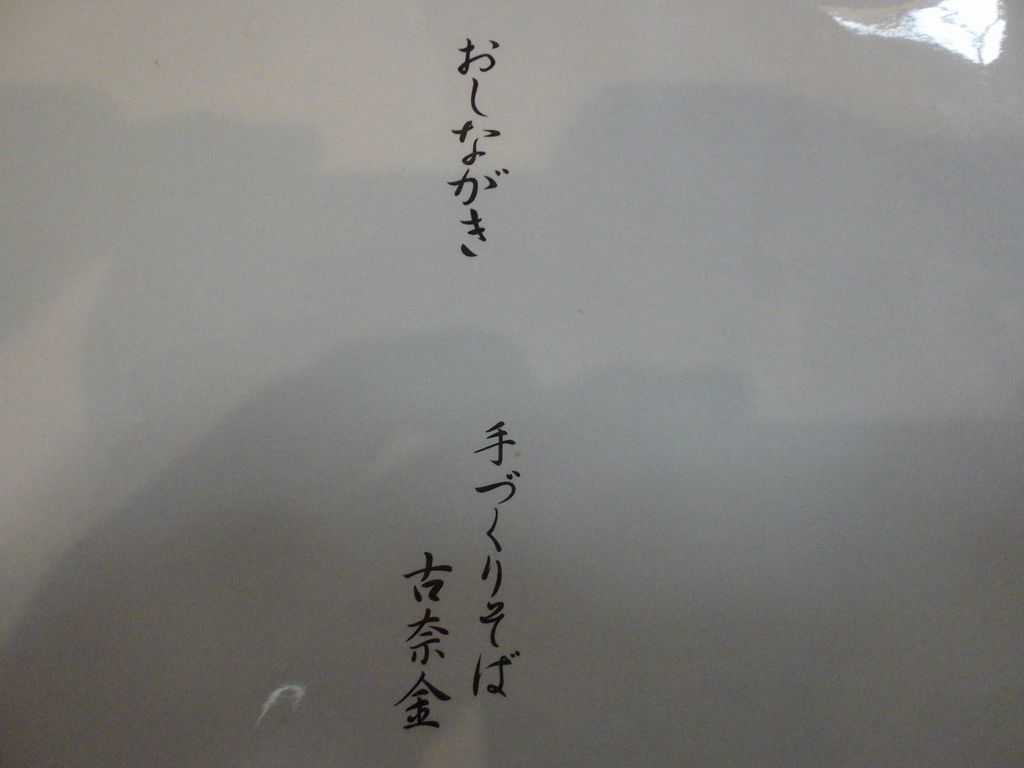 おしながき
手づくりそば
古奈金